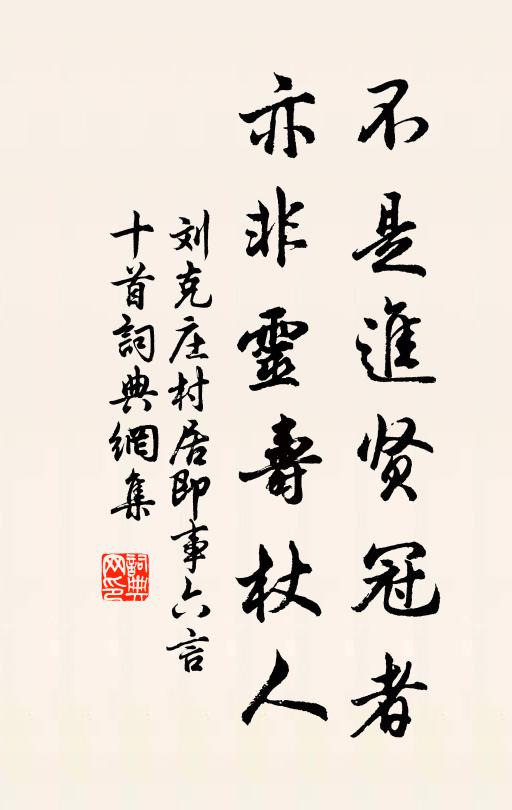 不是進贤冠者
亦非靈壽杖人
刘克庄村居即事六言
十首詞典網集
詞典
网印